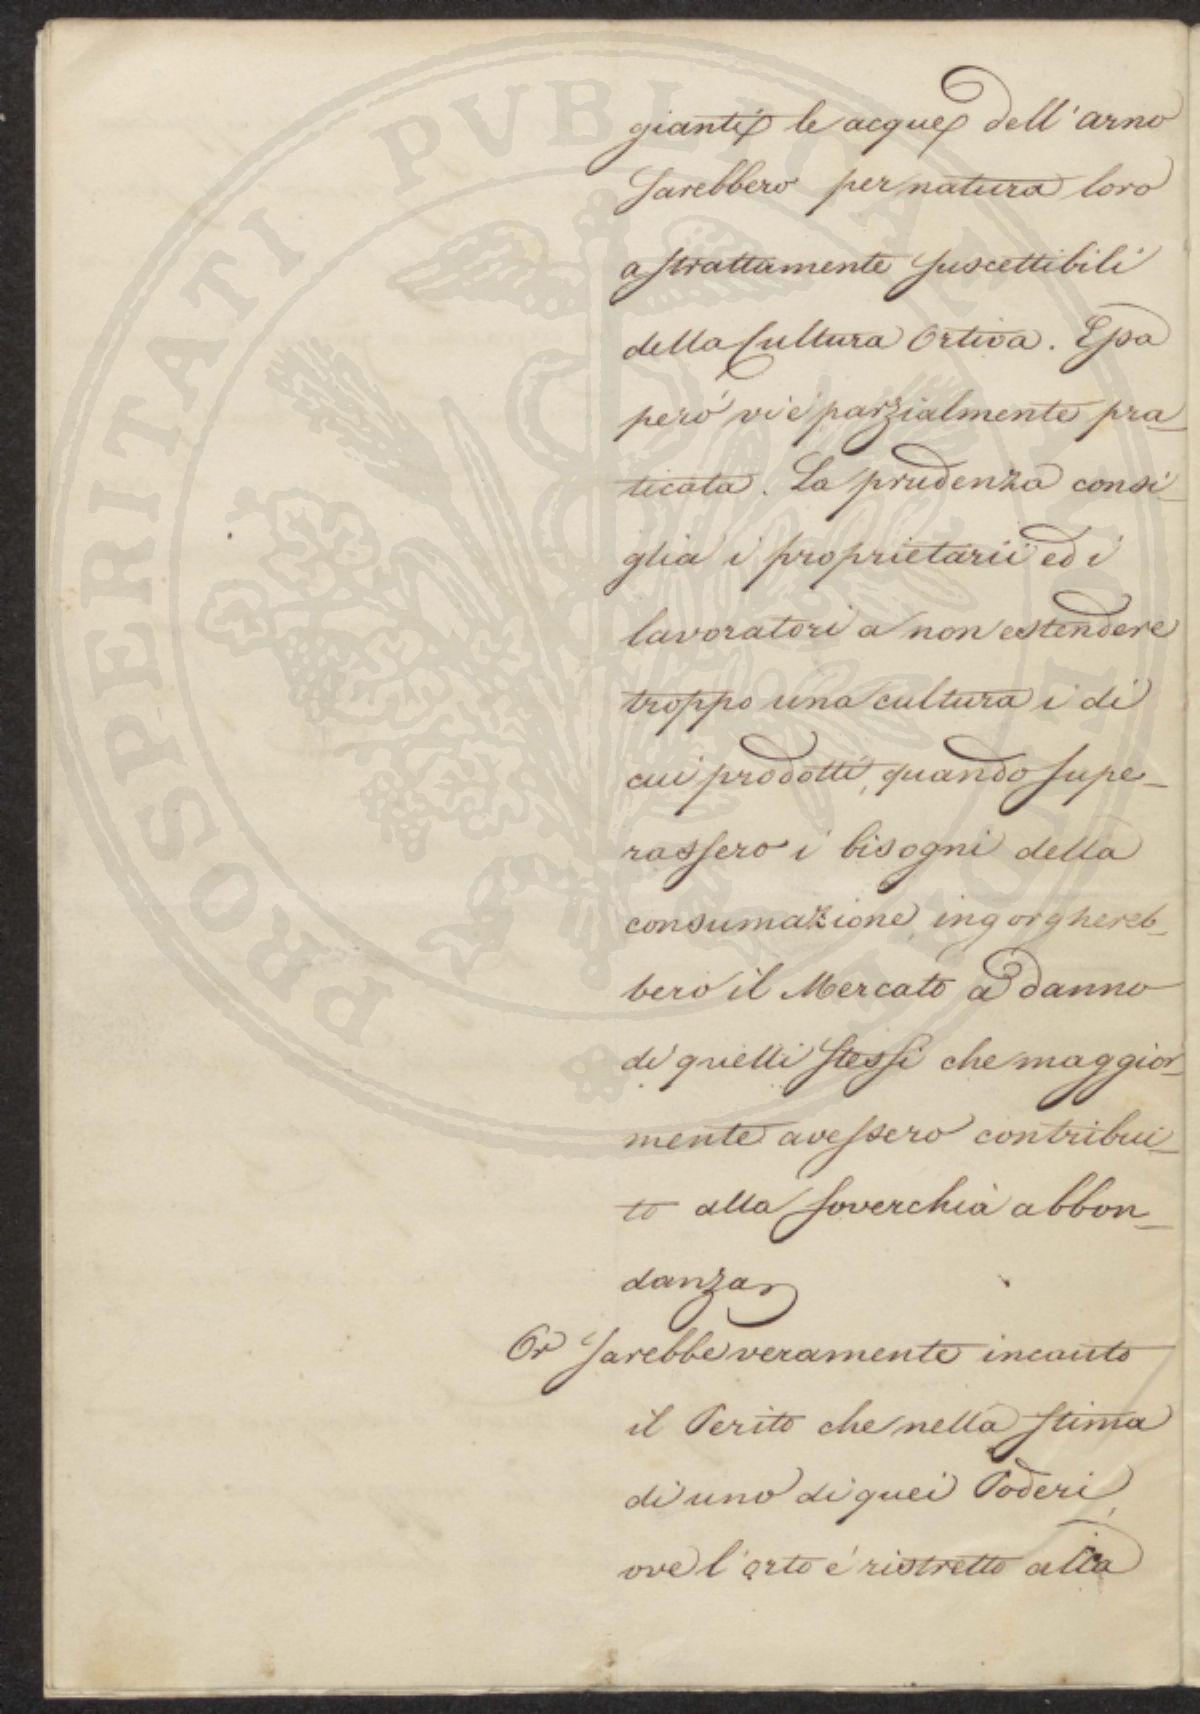 gianti le acque dell'arno
sarebbero per natura loro
astrattamente suscettibili
della Cultura Ortiva. Essa
peró vi é parzialmente pra_
ticata. La prudenza consi_
glia i proprietarii ed i
lavoratori a non estendere
troppo una cultura i di
cui prodotti, quando supe_
rassero i bisogni della
consumazione, ingorghereb_
bero il Mercato a danno
di quelli stessi che maggior_
mente avessero contribui_
to alla soverchia abbon_
danza
Or sarebbe veramente incauto
il Perito che nella stima
di uno di quei Poderi,
ove l'orto é ristretto alla
PROSPERITATI PVBLICAE